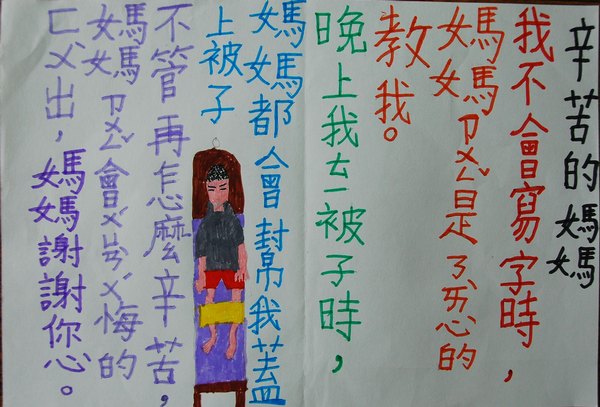 辛苦的媽媽
我不會寫字時，
媽媽ㄗㄨㄥˇ是ㄋㄞˋ心的
教我。
晚上我ㄊㄧ被子時，
媽媽都會幫我蓋
上被子
不管再怎麼辛苦，
媽媽ㄗㄨㄥˇ會ㄨˊㄩㄢˋㄨˊ悔的
ㄈㄨˋ出，媽媽謝謝您。